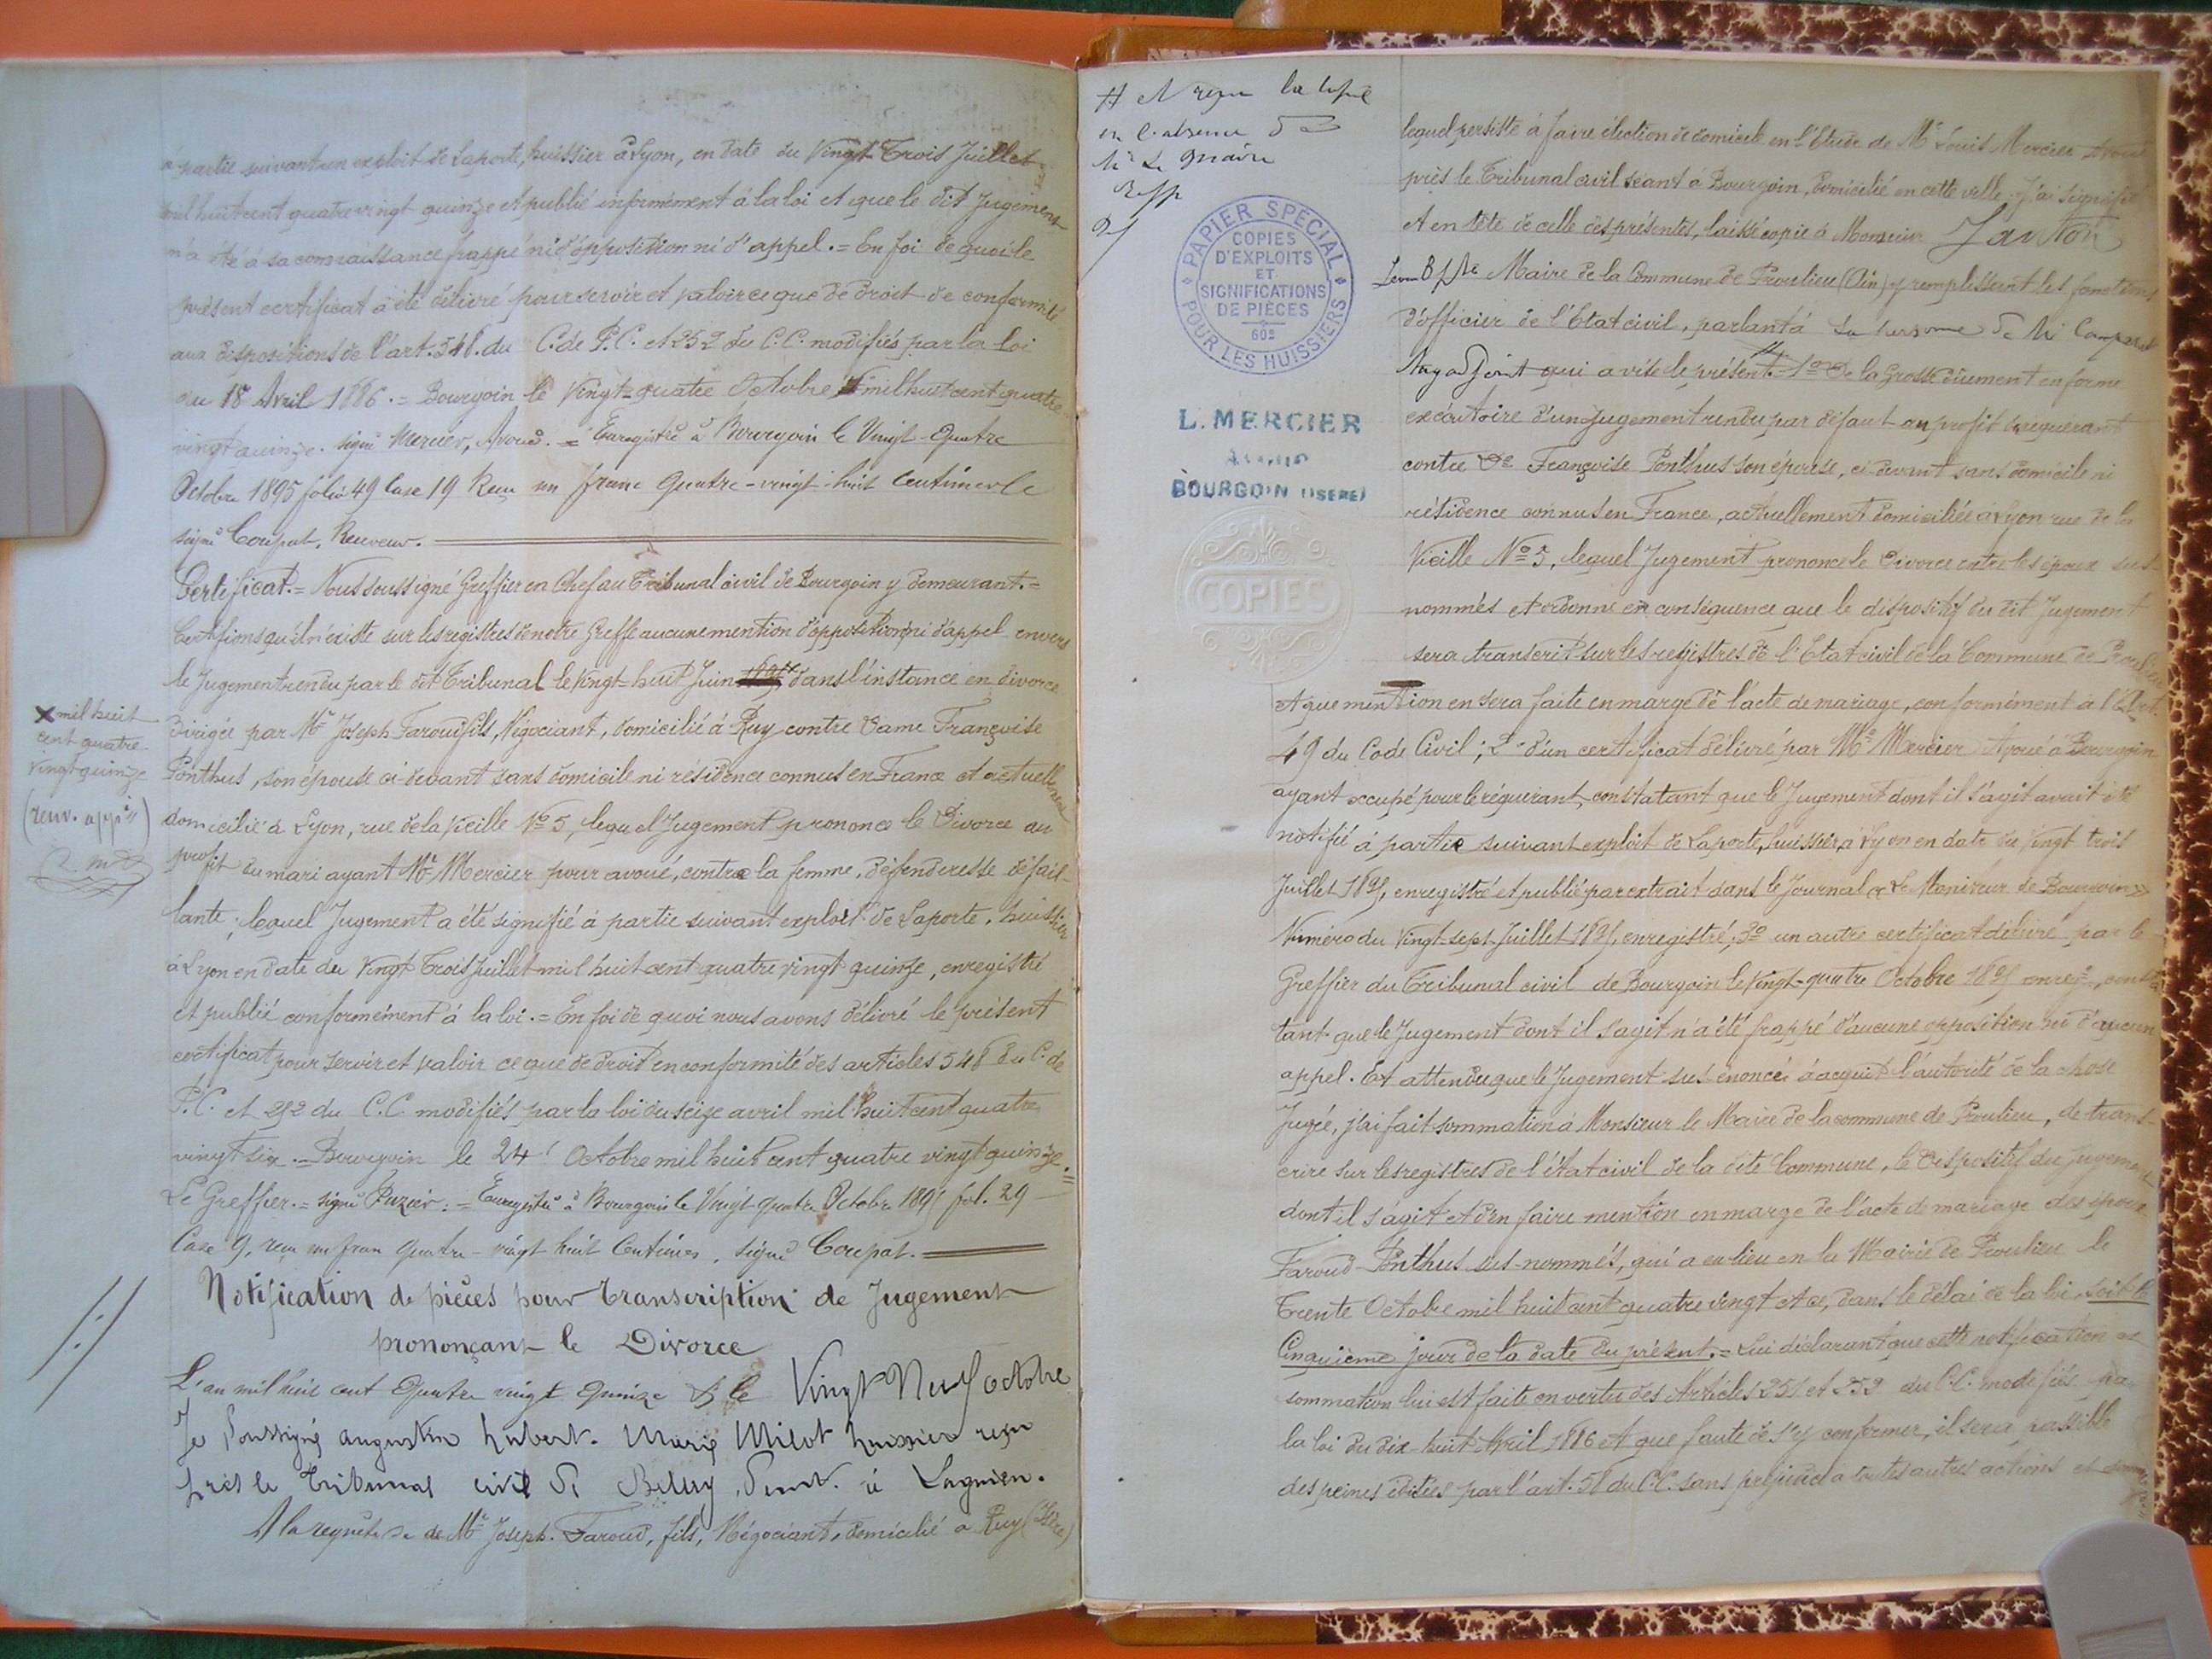 à partie suivant son exploit de Laporte, huissier à Lyon, en date du Vingt Trois Juillet
mil huit cent quatre vingt quinze et publié conformément à la loi et que le dit Jugement
n'a été à sa connaissance frappé ni d'opposition ni d'appel. = En foi de quoi le
présent certificat a été délivré pour servir et valoir ce que de droit de conformité
aux dispositions de l'art. 548. du C. de P. C. et 252 du C. C. modifiés par la loi
du 18 Avril 1886. = Bourgoin le Vingt-quatre Octobre mil huit cent quatre
vingt quinze. signé Mercier, Avoué. = Enregistré à Bourgoin le Vingt-Quatre
Octobre 1895 folio 49 Case 19 Reçu un franc Quatre-vingt-huit Centimes le
signé Coupat, Receveur.
Certificat. = Nous soussigné Greffier en Chef au Tribunal civil de Bourgoin y demeurant. =
Certifions qu'il n'existe sur les registres de notre Greffe aucune mention d'opposition ni d'appel envers
le Jugement rendu par le dit Tribunal le Vingt-huit Juin dans l'instance en divorce
X mil huit
cent quatre
vingt quinze
(renv. app.)
dirigée par Mr Joseph Faroud fils, Négociant, domicilié à Ruy contre Dame Françoise
Ponthus, son épouse ci-devant sans domicile ni résidence connus en France et actuellement
domicilié à Lyon, rue de la Vieille No 5, lequel Jugement prononce le Divorce au
profit du mari ayant Me Mercier pour avoué, contre la femme, défenderesse défail-
lante; lequel Jugement a été signifié à partie suivant exploit de Laporte, huissier
à Lyon en date du Vingt Trois Juillet mil huit cent quatre vingt quinze, enregistré
et publié conformément à la loi. = En foi de quoi nous avons délivré le présent
certificat pour servir et valoir ce que de droit en conformité des articles 548 du C. de
P. C. et 252 du C. C. modifiés par la loi du seize avril mil huit cent quatre
vingt six. = Bourgoin le 24 Octobre mil huit cent quatre vingt quinze. =
Le Greffier. = signé = Enregistré à Bourgoin le Vingt quatre Octobre 1895 fol. 29
Case 9, reçu un fran Quatre-vingt huit Centimes. signé Coupat.
Notification de pièces pour transcription de Jugement
prononçant le Divorce
L'an mil huit cent Quatre vingt Quinze & le Vingt Neuf octobre
Je soussigné augustin hubert. Marie Milot huissier reçu
près le Tribunal civil de Belley, demt. à Lagnieu.
A la requête de Mr Joseph Faroud, fils, Négociant, domicilié à Ruy (Isère)
en l'absence de
Mr le Maire
PAPIER SPÉCIAL
POUR LES HUISSIERS
COPIES
D'EXPLOITS
ET
SIGNIFICATIONS
DE PIÈCES
60c
L. MERCIER
Avoué
BOURGOIN (ISÈRE)
COPIES
lequel persiste à faire élection de domicile en l'Etude de Me Louis Mercier avoué
près le Tribunal civil séant à Bourgoin, domicilié en cette ville. J'ai signifié
et en tête de celle des présentes, laissé copie à Monsieur Janton
Maire de la Commune de Proulieu (Ain) y remplissant les fonctions
d'officier de l'Etat civil, parlant à sa personne
adjoint qui a visé le présent. = 1o De la Grosse dûment en forme
exécutoire d'un Jugement rendu par défaut au profit du requérant
contre De Françoise Ponthus son épouse, ci-devant sans domicile ni
résidence connus en France, actuellement domiciliée à Lyon rue de la
Vieille No 5, lequel Jugement prononce le divorce entre les époux sus-
nommés et ordonne en conséquence que le dispositif du dit Jugement
sera transcrit sur les registres de l'Etat civil de la Commune de Proulieu
et que mention en sera faite en marge de l'acte de mariage, conformément à l'Art.
49 du Code Civil; 2o d'un certificat délivré par Me Mercier Avoué à Bourgoin
ayant occupé pour le réquérant, constatant que le Jugement dont il s'agit avait été
notifié à partie suivant exploit de Laporte, huissier à Lyon en date du Vingt trois
Juillet 1895, enregistré et publié par extrait dans le Journal « Le Moniteur de Bourgoin »
Numéro du Vingt-sept Juillet 1895, enregistré; 3o un autre certificat délivré par le
Greffier du Tribunal civil de Bourgoin le Vingt-quatre Octobre 1895 enreg., consta-
tant que le Jugement dont il s'agit n'a été frappé d'aucune opposition ni d'aucun
appel. Et attendu que le Jugement sus énoncé a acquit l'autorité de la chose
Jugée, j'ai fait sommation à Monsieur le Maire de la commune de Proulieu, de trans-
crire sur les registres de l'état civil de la dite Commune, le dispositif du Jugement
dont il s'agit et d'en faire mention en marge de l'acte de mariage des époux
Faroud-Ponthus sus-nommés, qui a eu lieu en la Mairie de Proulieu le
Trente Octobre mil huit cent quatre vingt et ce, dans le délai de la loi, soit le
Cinquième jour de la date du présent. = Lui déclarant que cette notification et
sommation lui est faite en vertu des Articles 251 et 252 du C.C. modifiés par
la loi du dix-huit Avril 1886 et que faute de s'y conformer, il sera passible
des peines édictées par l'art. 50 du C.C. sans préjudice à toutes autres actions et